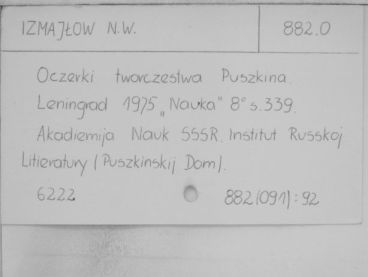 IZMAJŁOW N.W. 882.0
Oczerki tworczestwa Puszkina.
Leningrad 1975 „Nauka" 8° s.339.
Akadiemija Nauk SSSR. Institut Russkoj
Litieratury (Puszkinskij Dom).
6222 882(091):92